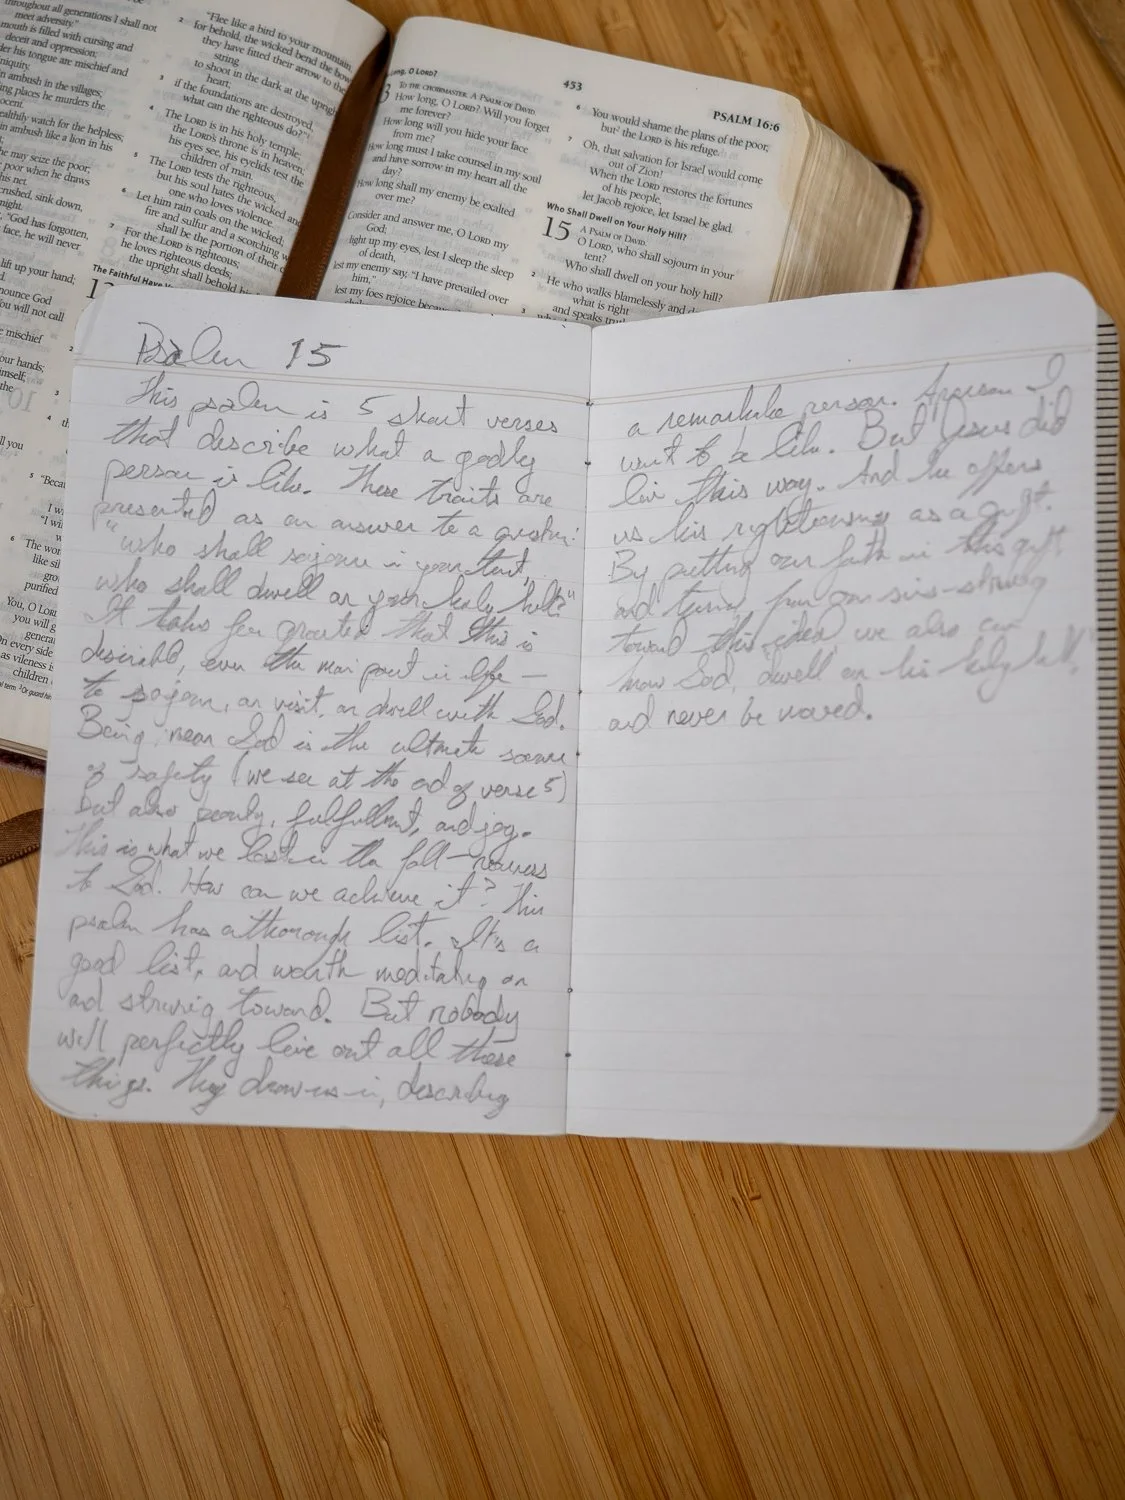 throughout all generations I shall not
meet adversity."
mouth is filled with cursing and
deceit and oppression;
his tongue are mischief and
iniquity.
in ambush in the villages;
places he murders the
stealthily watch for the helpless;
in ambush like a lion in his
he may seize the poor;
poor when he draws
his net.
crushed, sink down,
"God has forgotten,
face, he will never
lift up your hand;
God
will not call
mischief
your hands;
2 "Flee like a bird to your mountain,
for behold, the wicked bend the bow;
they have fitted their arrow to the
string
to shoot in the dark at the upright
heart;
3 if the foundations are destroyed,
what can the righteous do?"
4 The LORD is in his holy temple;
the LORD's throne is in heaven;
his eyes see, his eyelids test the
children of man.
5 The LORD tests the righteous,
but his soul hates the wicked and
one who loves violence.
6 Let him rain coals on the wicked;
fire and sulfur and a scorching
shall be the portion of their
7 For the LORD is righteous;
he loves righteous deeds;
the upright shall behold his
The Faithful Have
5 "Because
I wi
"I wi
6 The wor
like sil
purified
You, O LORD
you will g
genera
On every side
as vileness is
children
453
PSALM 16:6
Long, O LORD?
TO THE CHOIRMASTER. A PSALM OF DAVID.
How long, O LORD? Will you forget
me forever?
How long will you hide your face
from me?
How long must I take counsel in my soul
and have sorrow in my heart all the
day?
How long shall my enemy be exalted
over me?
Consider and answer me, O LORD my
God;
light up my eyes, lest I sleep the sleep
of death,
lest my enemy say, "I have prevailed over
him,"
lest my foes rejoice because
6 You would shame the plans of the poor,
but the LORD is his refuge.
7 Oh, that salvation for Israel would come
out of Zion!
When the LORD restores the fortunes
of his people,
let Jacob rejoice, let Israel be glad.
Who Shall Dwell on Your Holy Hill?
15 A PSALM OF DAVID.
O LORD, who shall sojourn in your
tent?
Who shall dwell on your holy hill?
2 He who walks blamelessly and
what is right
and speaks
Psalm 15
This psalm is 5 short verses
that describe what a godly
person is like. These traits are
presented as an answer to a question:
"who shall sojourn in your tent,
who shall dwell on your holy hill?"
It takes for granted that this is
desirable, even the main point in life —
to sojourn, or visit, or dwell with God.
Being near God is the ultimate source
of safety (we see at the end of verse 5)
but also beauty, fulfillment, and joy.
This is what we lost in the fall — nearness
to God. How can we achieve it? This
psalm has a thorough list. It's a
good list, and worth meditating on
and striving toward. But nobody
will perfectly live out all these
things. They draw us in, describing
a remarkable person. A person I
want to be like. But Jesus did
live this way. And he offers
us his righteousness as a gift.
By putting our faith in this gift
and turning from our sins – striving
toward this ideal, we also can
know God, dwell on his holy hill,
and never be moved.